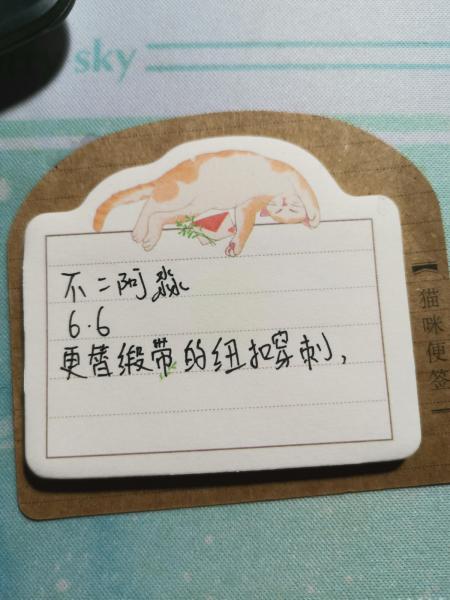 sky
不二阿淼
6.6
更替缎带的纽扣穿刺,
【猫咪便签】